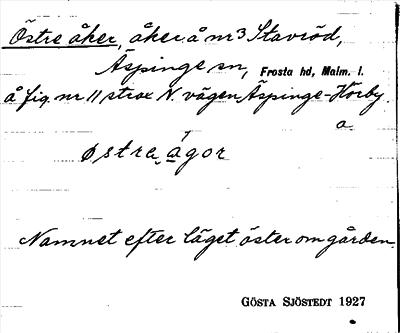 Östre åker, åker å nr 3 Stavröd,
Äspinge sn, Frosta hd, Malm. l.
å fig. nr 11 strax N. vägen Äspinge-Hörby.
a.
østra ágor
Namnet efter läget öster om gården.
GÖSTA SJÖSTEDT 1927